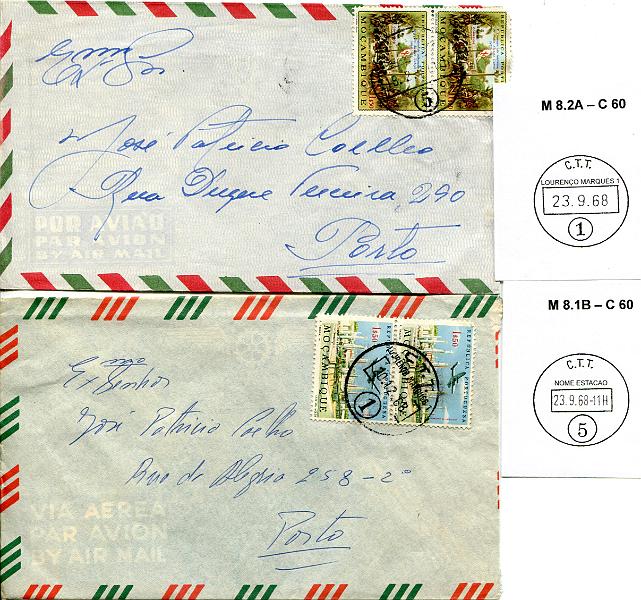 Exmo Sr.
José Patricio Coelho
Rua Duque Terceira, 290
Porto
POR AVIÃO
PAR AVION
BY AIR MAIL
MOÇAMBIQUE
MOÇAMBIQUE
5
M 8.2A – C 60
C.T.T.
LOURENÇO MARQUES 1
23.9.68
1
M 8.1B – C 60
C.T.T.
NOME ESTACAO
23.9.68-11H
5
Exmo
Senhor
José Patricio Coelho
Rua de Alegria 258-2º
Porto
VIA AEREA
PAR AVION
BY AIR MAIL
MOÇAMBIQUE
REPUBLICA PORTUGUESA
1$50
1$50
C.T.T.
1